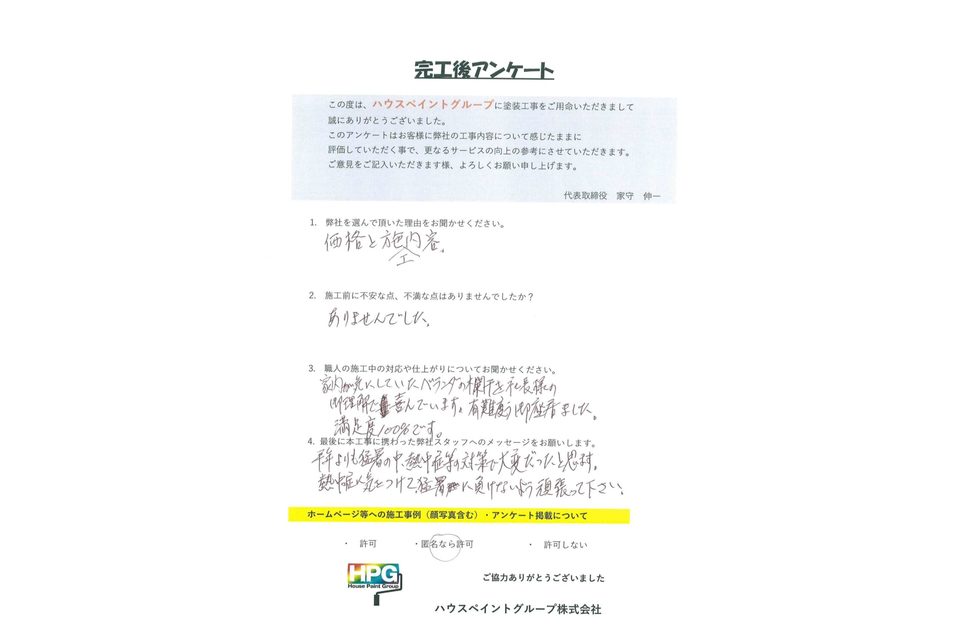 完工後アンケート
この度は、ハウスペイントグループに塗装工事をご用命いただきまして
誠にありがとうございました。
このアンケートはお客様に弊社の工事内容について感じたままに
評価していただく事で、更なるサービスの向上の参考にさせていただきます。
ご意見をご記入いただきます様、よろしくお願い申し上げます。
代表取締役 家守 伸一
1. 弊社を選んで頂いた理由をお聞かせください。
価格と施工内容。
2. 施工前に不安な点、不満な点はありませんでしたか？
ありませんでした。
3. 職人の施工中の対応や仕上がりについてお聞かせください。
家内が気にしていたベランダの欄干を社長様の
御理解で喜んでいます。有難度う御座居ました。
満足度100%です。
4. 最後に本工事に携わった弊社スタッフへのメッセージをお願いします。
平年よりも猛署の中、熱中症等の対策で大変だったと思います。
熱中症に気をつけて、猛署に負けないよう頑張って下さい。
ホームページ等への施工事例（顔写真含む）・アンケート掲載について
・ 許可 ・匿名なら許可 ・ 許可しない
HPG
House Paint Group
ご協力ありがとうございました
ハウスペイントグループ株式会社